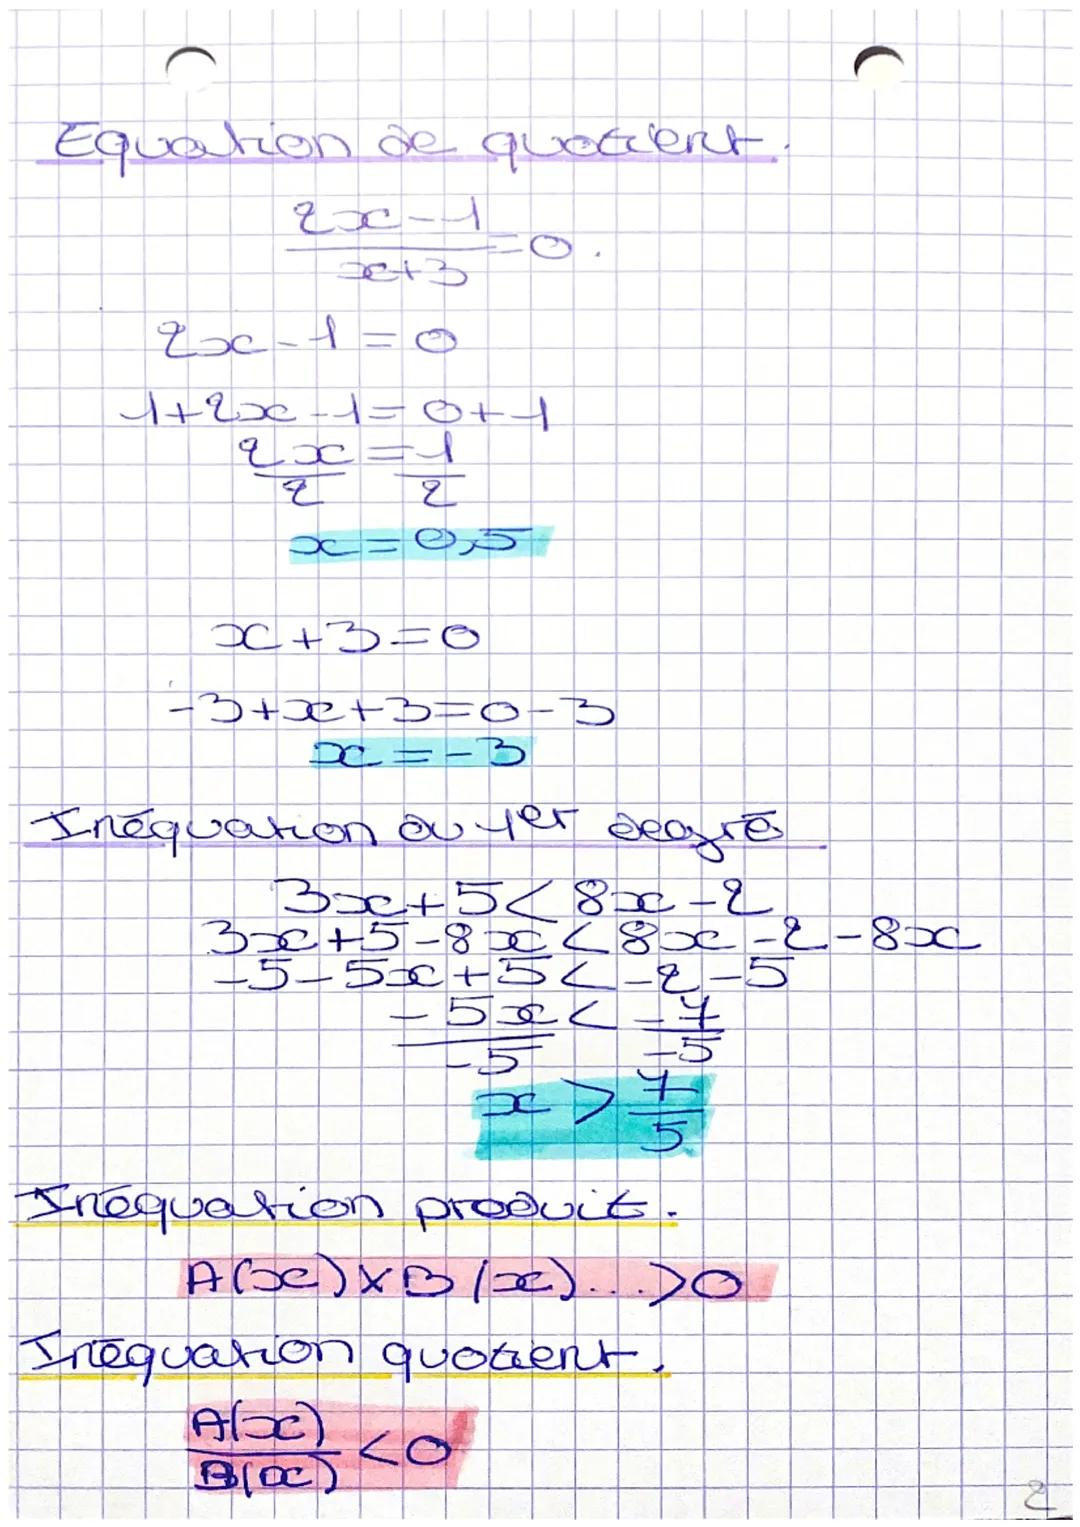 Equation de quotient.
2x-1
x+3
=0.
2x-1=0
1+2x-1=0+1
2x=1
2 2
x=0,5
x+3=0
-3+x+3=0-3
x=-3
Inéquation du 1er degré
3x+5<8x-2
3x+5-8x<8x-2-8x
-5-5x+5<-2-5
-5x<-7
-5 -5
x>7
5
Inéquation produit.
A(x)×B(x)...>0
Inéquation quotient.
A(x)
B(x)
<0
2